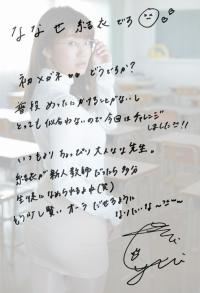 ななせ 結衣です
初メガネ どうですか?
普段めったにかけることがないし
とっても似合わないので今回はチャレンジ
しました!!
いつもよりちょっぴり大人な先生。
結衣が新人教師だったら多分
生徒になめられるよね(笑)
もう少し賢いオーラだせるように
なりたいな〜